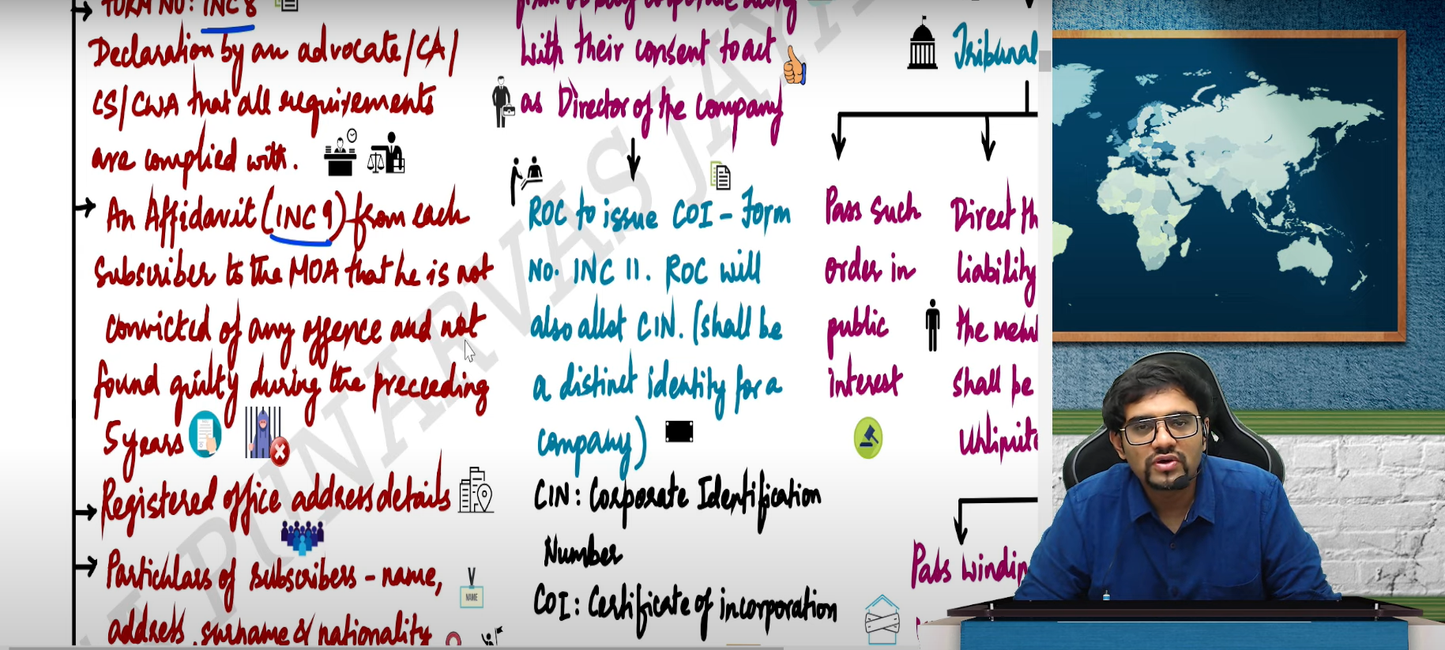 FORM NO: INC 8
Declaration by an advocate/CA/
CS/CWA that all requirements
are complied with.
An Affidavit (INC 9) from each
Subscriber to the MOA that he is not
convicted of any offence and not
found guilty during the preceding
5 years
Registered office address details
Particulars of subscribers - name,
address, surname & nationality
NAME
with their consent to act
as Director of the Company
ROC to issue COI - Form
No. INC 11. ROC will
also allot CIN. (shall be
a distinct identity for a
company)
CIN: Corporate Identification
Number
COI: Certificate of incorporation
Tribunal
Pass Such
order in
public
interest
Direct th
liability
the mem
shall be
Unlimit
Pass windin